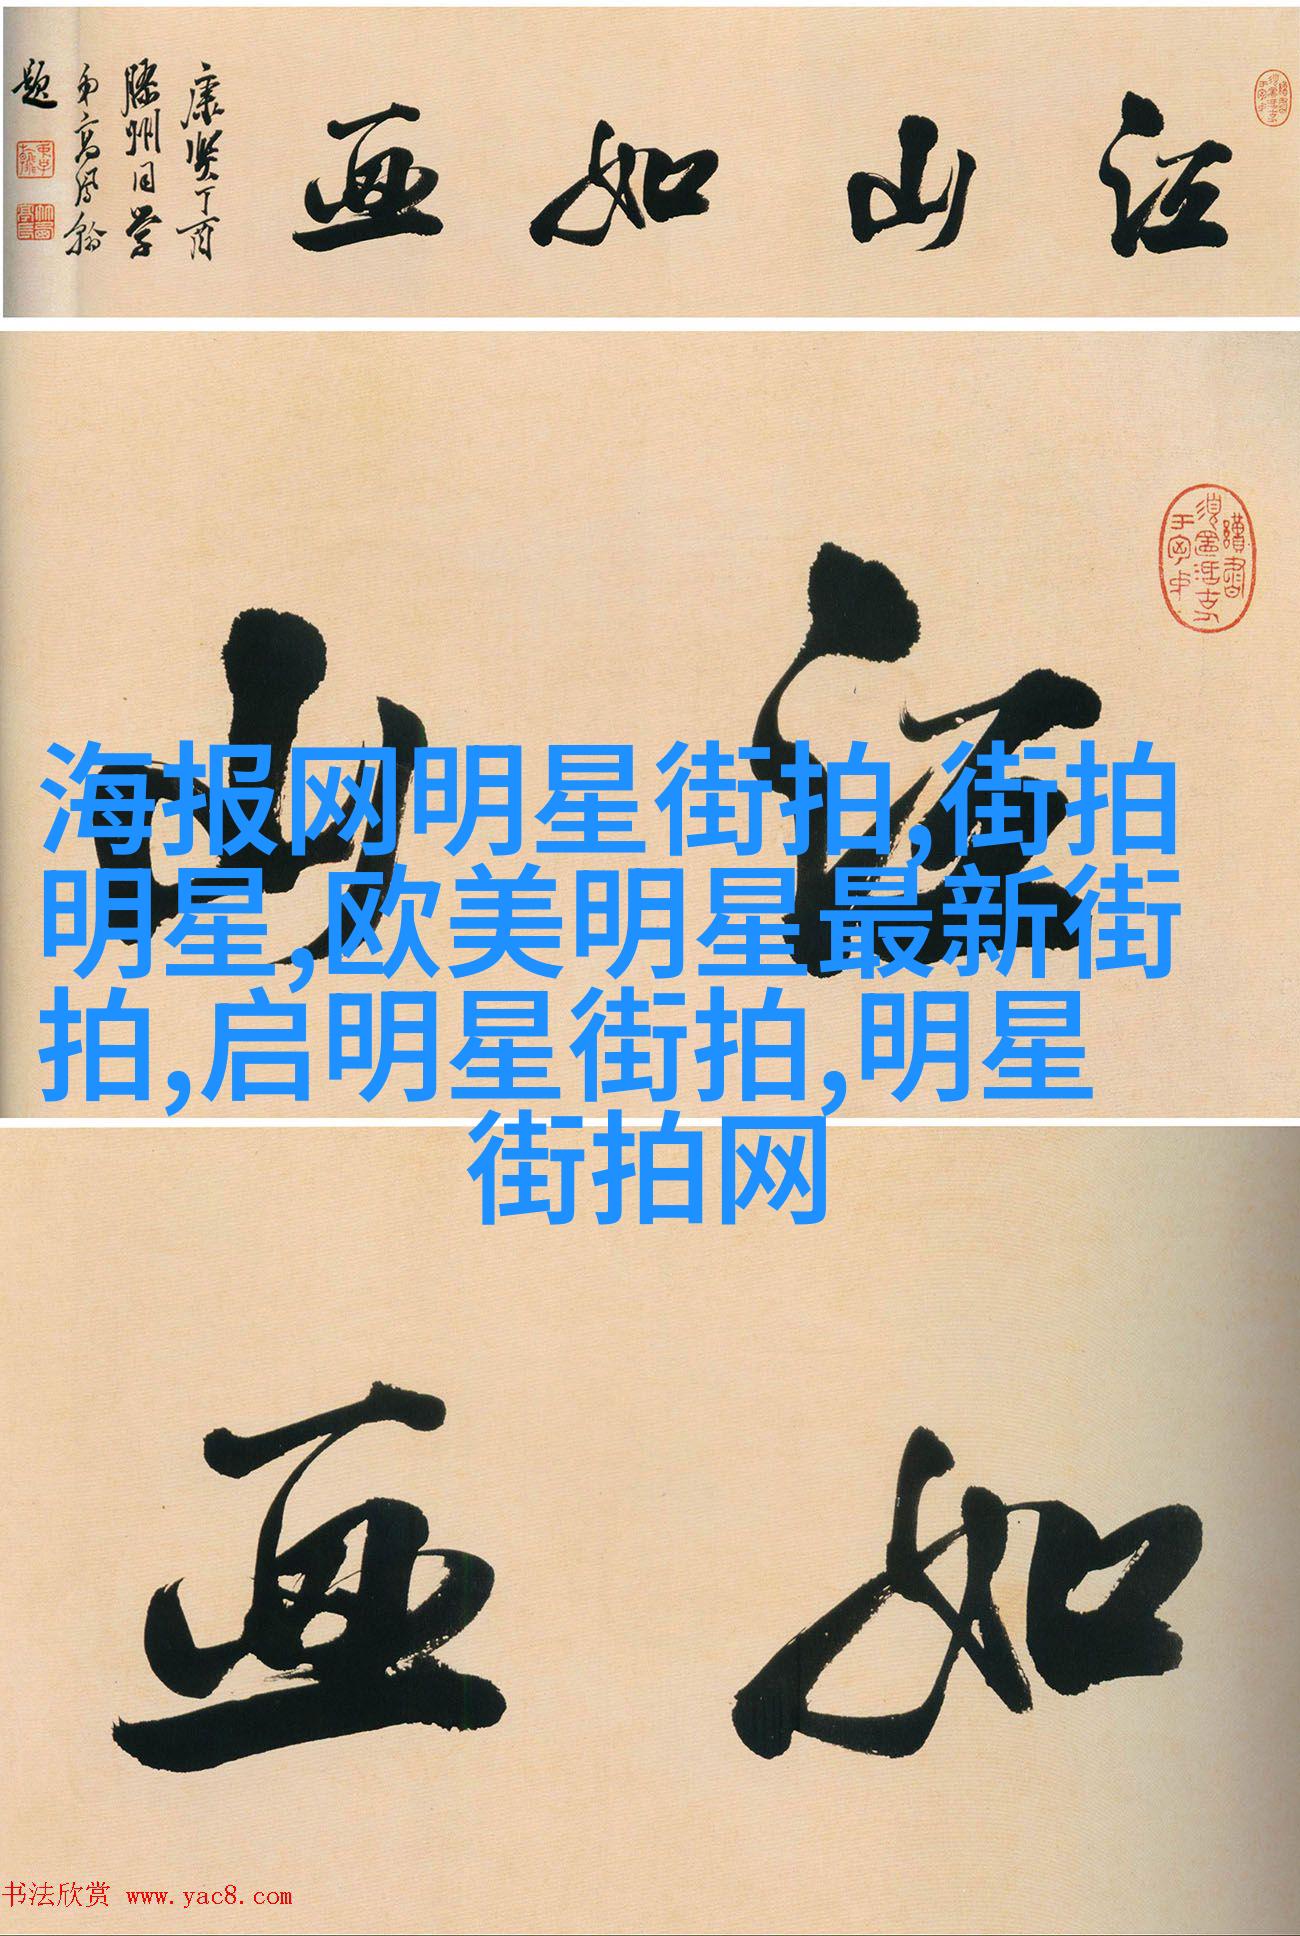 江山如画
康熙丁酉
滕州同学
弟高凤翰
题
江山
海报网明星街拍,街拍
明星,欧美明星最新街
拍,启明星街拍,明星
街拍网
如画
书法欣赏 www.yac8.com